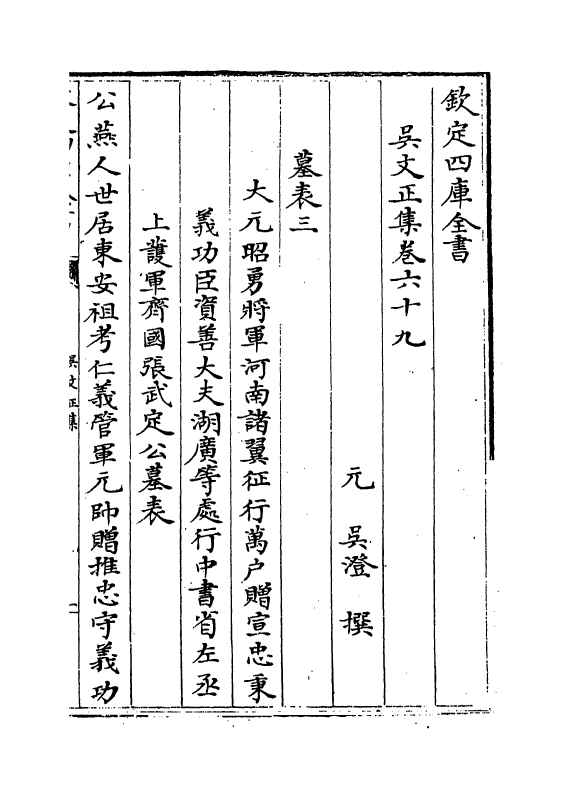 欽定四庫全書
吳文正集卷六十九
元 吳澄 撰
墓表三
大元昭勇將軍河南諸翼征行萬户贈宣忠秉
義功臣資善大夫湖廣等處行中書省左丞
上護軍齊國張武定公墓表
公燕人世居東安祖考仁義管軍元帥贈推忠守義功
吳文正集